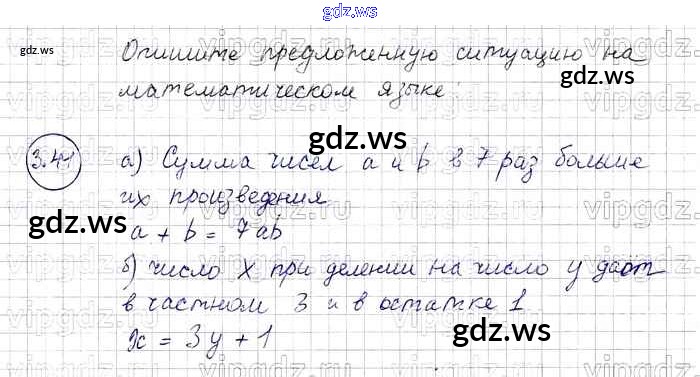 gdz.ws
gdz.ws
Опишите предложенную ситуацию на
gdz.ws
математическом языке:
gdz.ws
3.41
а) Сумма чисел a и b в 7 раз больше
их произведения
gdz.ws
gdz.ws
a + b = 7ab
б) число X при делении на число y даёт
в частном 3 и в остатке 1.
gdz.ws
x = 3y + 1